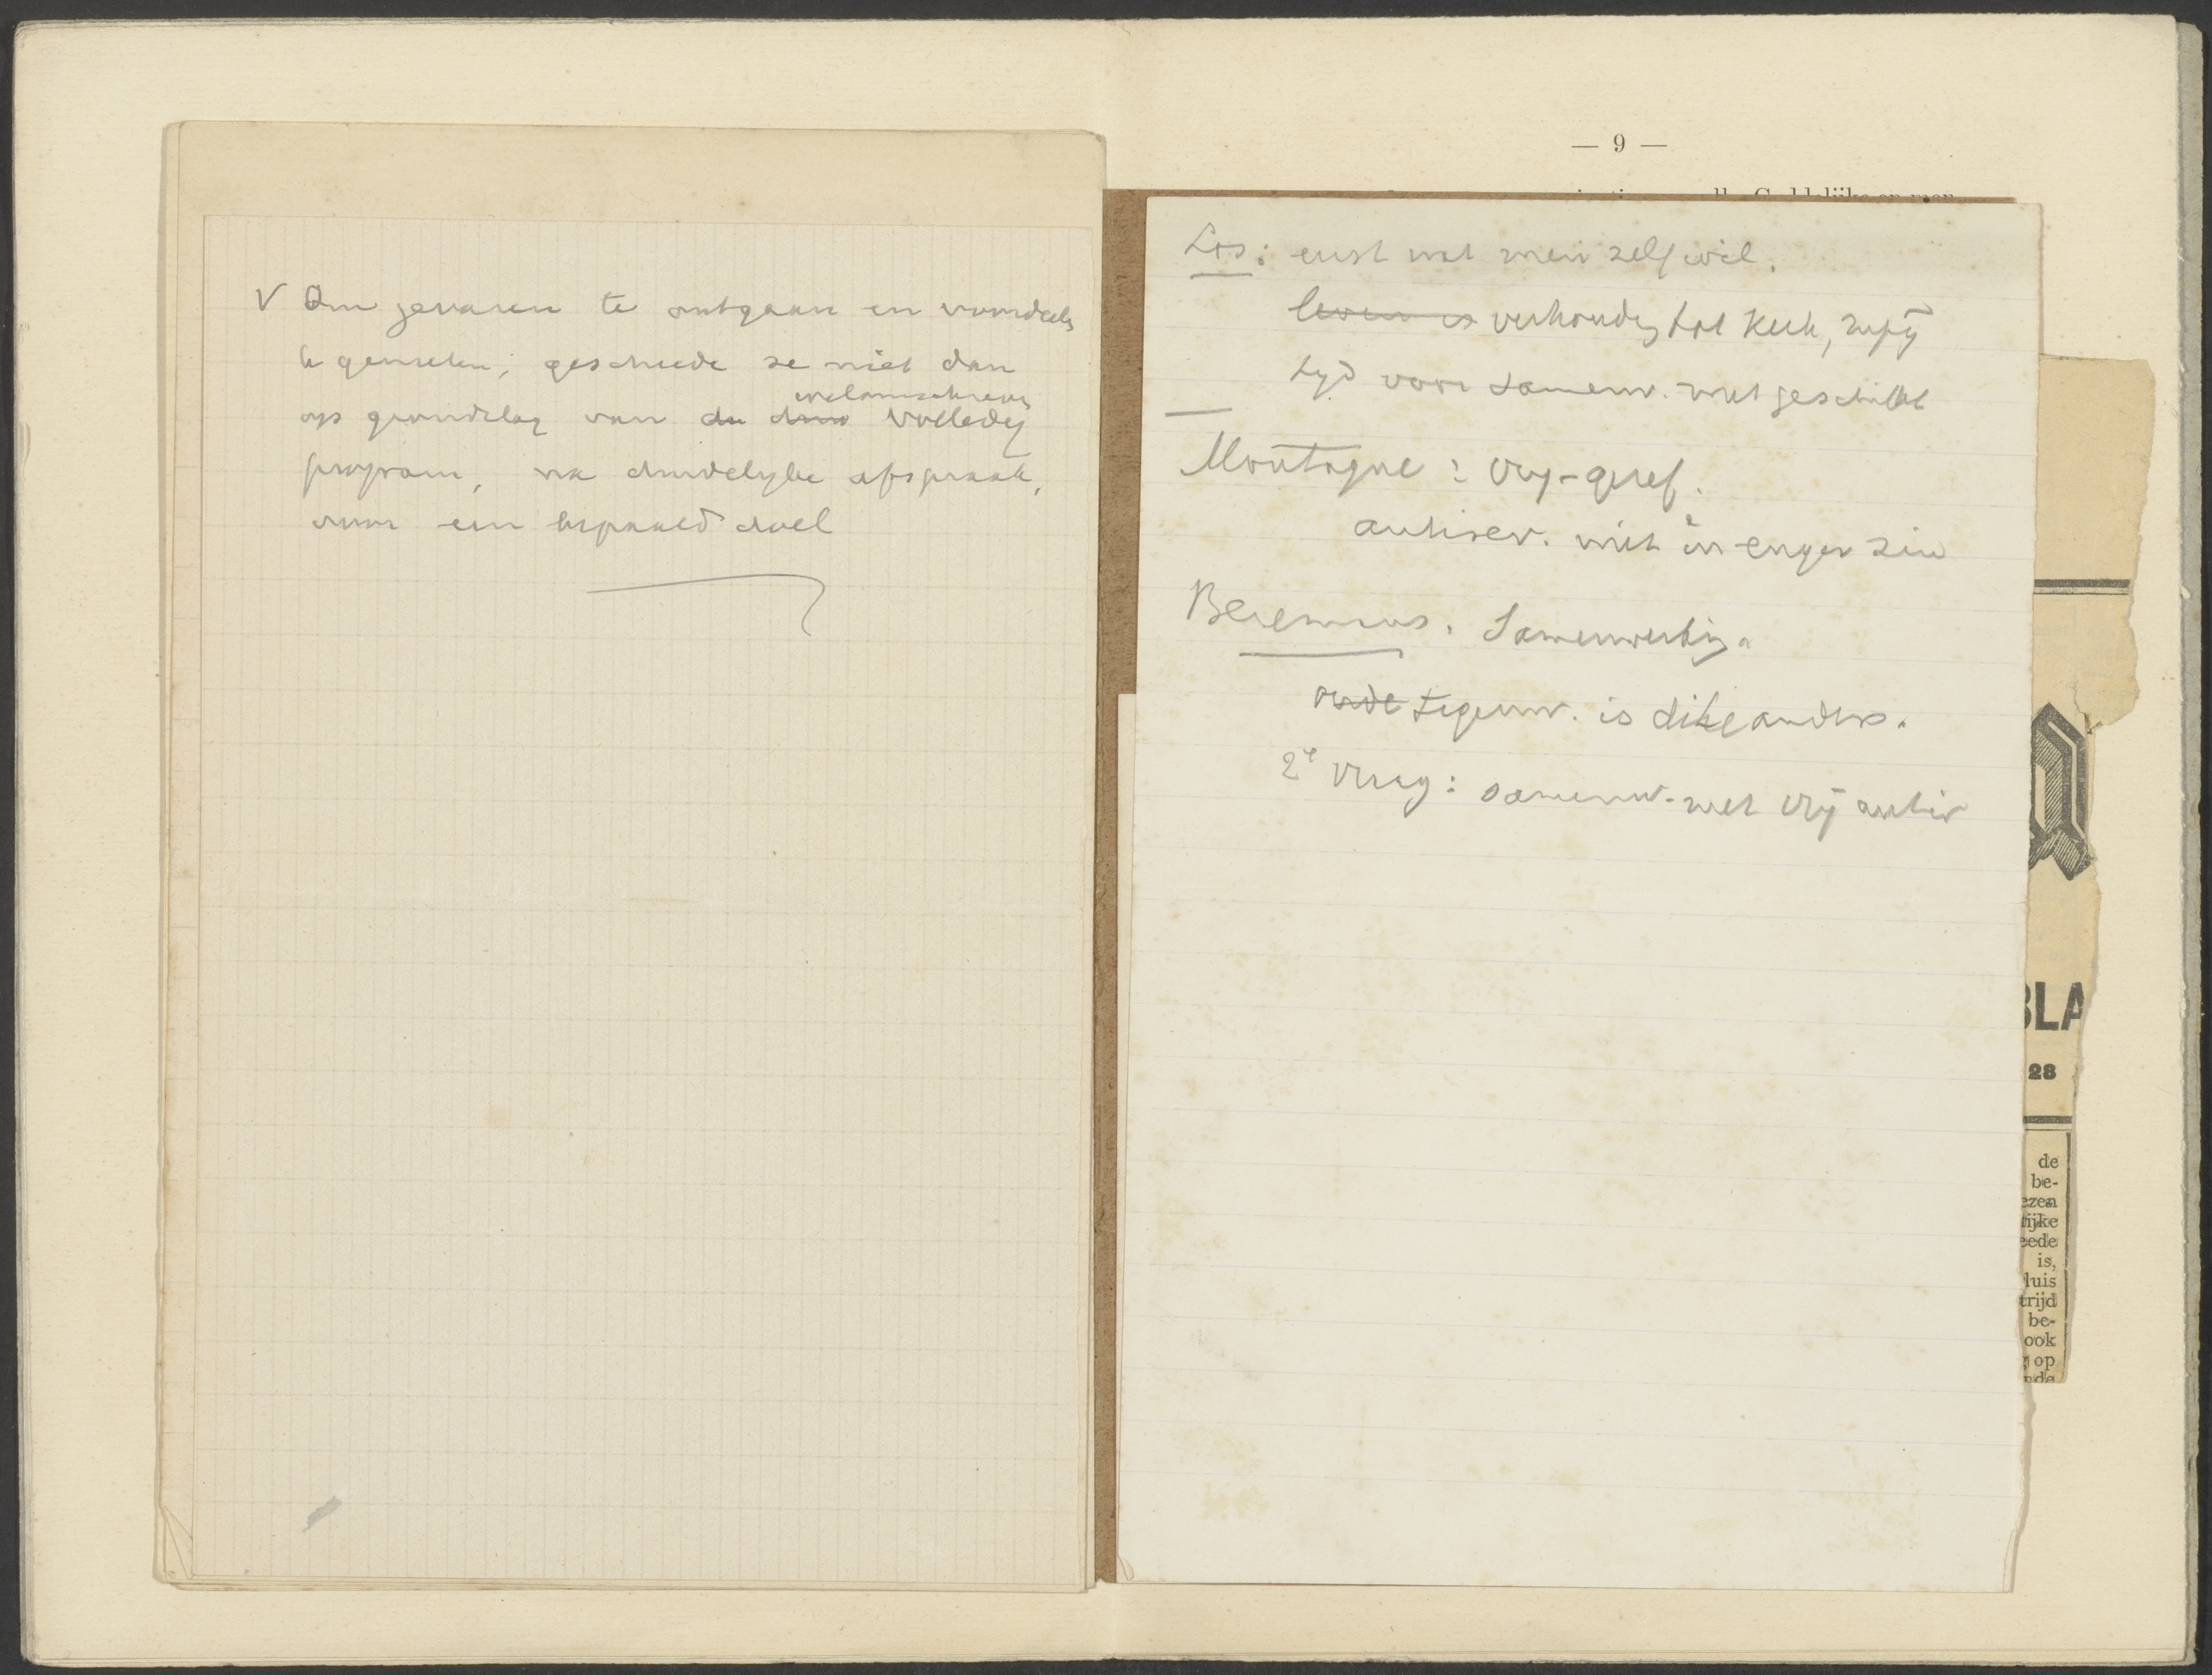 V Om gevaren te ontgaan en voordeelen
te genieten, geschiede ze niet dan
welomschreven
op grondslag van volledig
program, na duidelyke afspraak,
voor een bepaald doel
— 9 —
Los: eerst wat men zelf wil.
leven is verhouding tot Kerk,
tyd voor samenw. niet geschikt
Montagne: Vry-geref.
antirev. niet in enger zin
Samenwerking.
oude tegenw. is anders.
2e vraag: samenw. met Vrij antir
BLA
28
de
be-
ezen
tijke
eede
is,
luis
trijd
be-
ook
op
nde